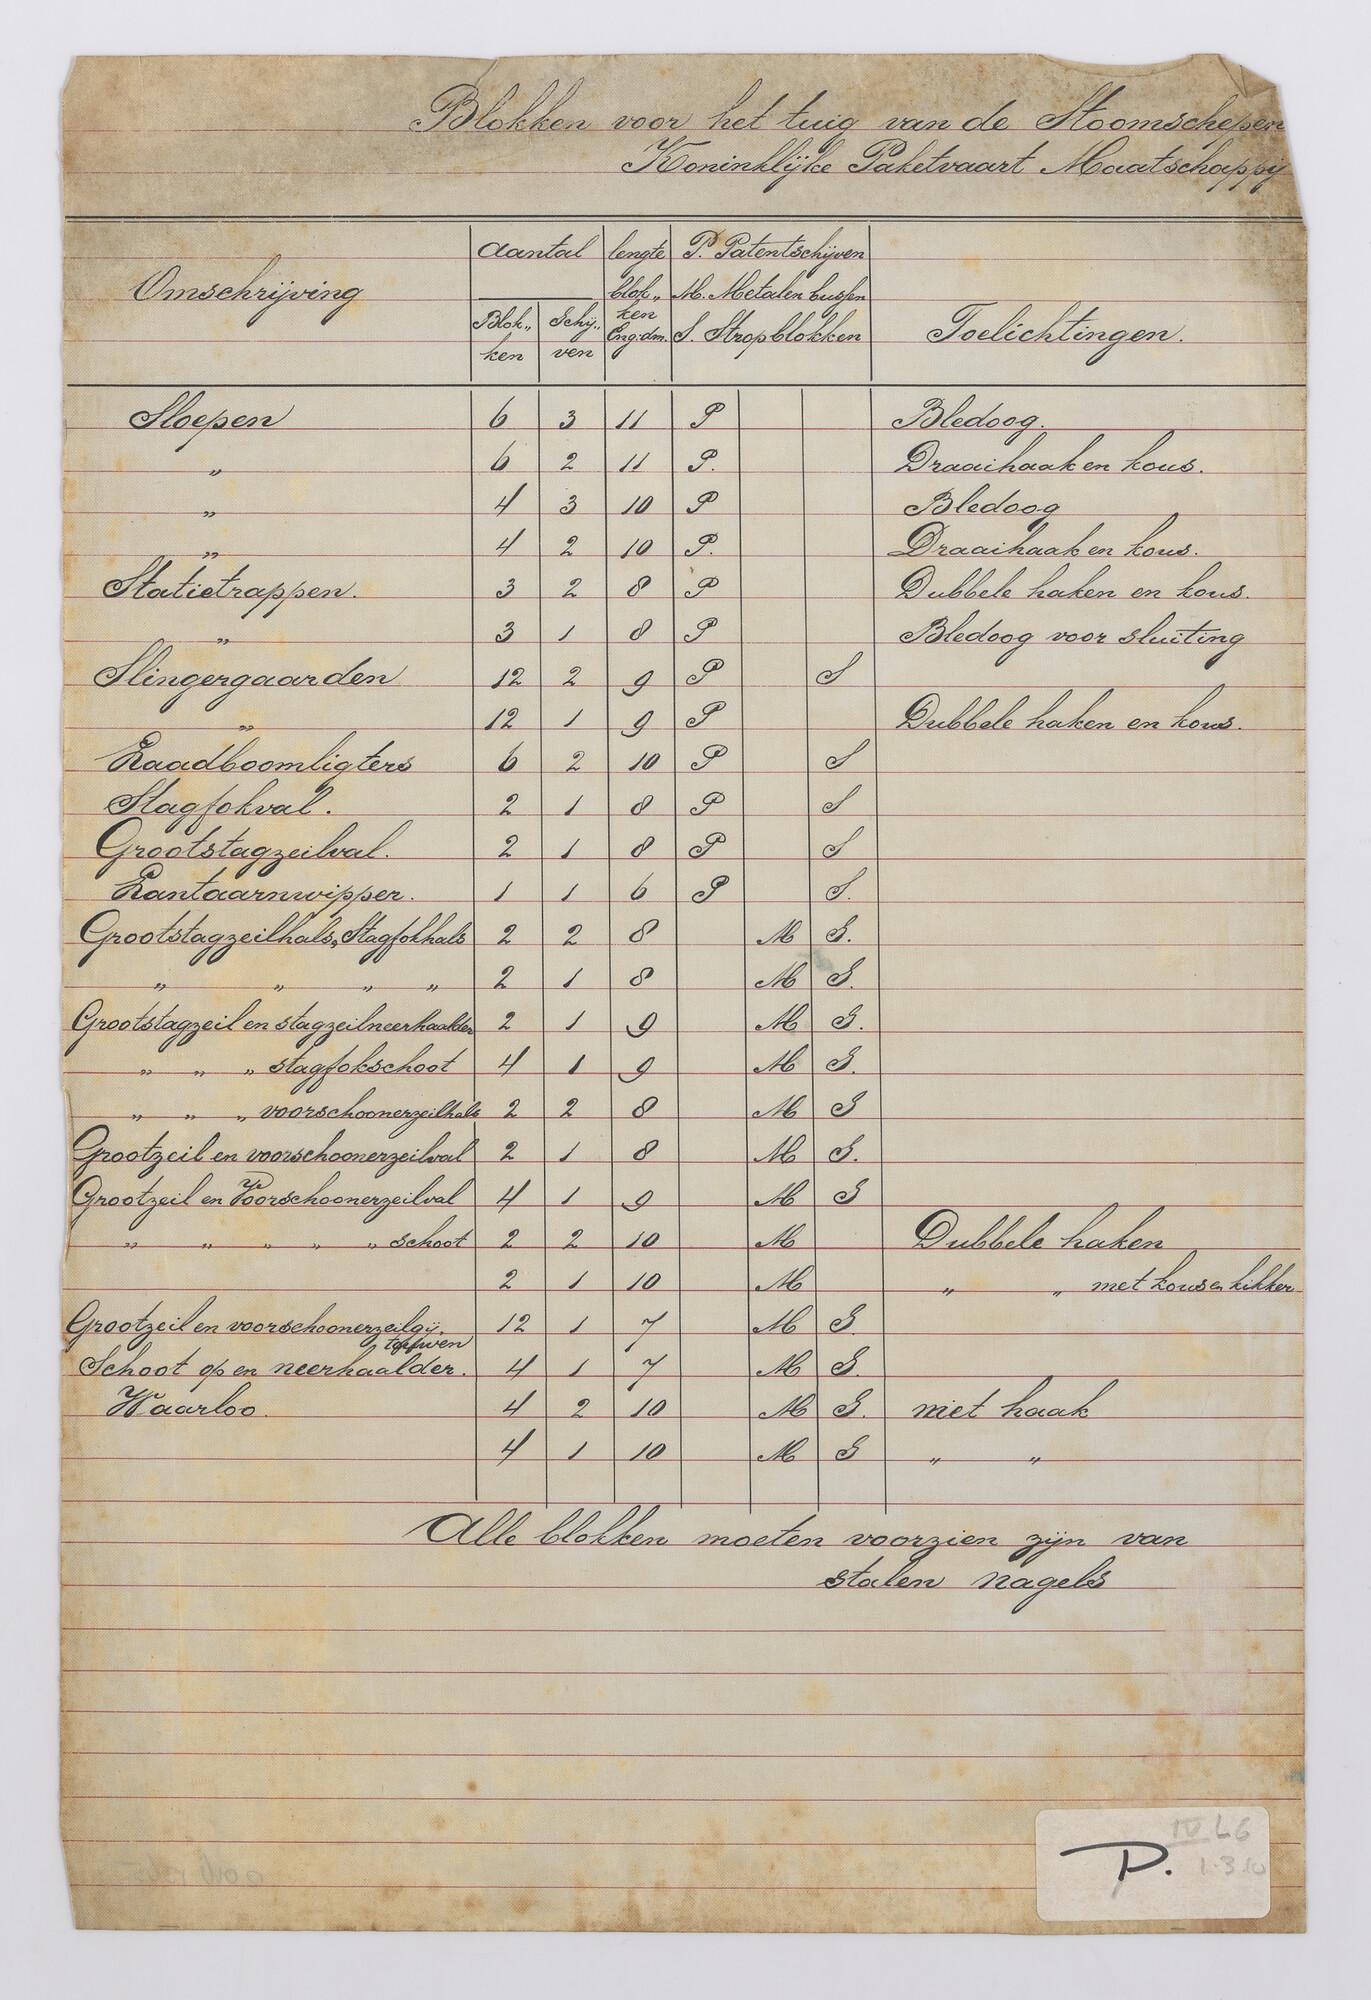 Blokken voor het tuig van de Stoomschepen
Koninklijke Paketvaart Maatschappij
Omschrijving
aantal
Blok„
ken
Schij„
ven
lengte
blok„
ken
Eng: dm.
P. Patentschijven
M. Metalen bussen
S. Stropblokken
Toelichtingen.
Sloepen 6 3 11 P Bledoog.
„ 6 2 11 P. Draaihaak en kous.
„ 4 3 10 P Bledoog
„ 4 2 10 P. Draaihaak en kous.
Statietrappen. 3 2 8 P Dubbele haken en kous.
„ 3 1 8 P Bledoog voor sluiting
Slingergaarden 12 2 9 P S
„ 12 1 9 P Dubbele haken en kous.
Laadboomligters 6 2 10 P S
Stagfokval. 2 1 8 P S
Grootstagzeilval. 2 1 8 P S
Lantaarnwipper. 1 1 6 P S.
Grootstagzeilhals, Stagfokhals 2 2 8 M S.
„ „ „ „ 2 1 8 M S.
Grootstagzeil en stagzeilneerhaalder 2 1 9 M S.
„ „ „ stagfokschoot 4 1 9 M S.
„ „ „ voorschoonerzeilhals 2 2 8 M S
Grootzeil en voorschoonerzeilval 2 1 8 M S.
Grootzeil en Voorschoonerzeilval 4 1 9 M S
„ „ „ „ „ schoot 2 2 10 M Dubbele haken
2 1 10 M „ „ met kous en kikker
Grootzeil en voorschoonerzeilgij. 12 1 7 M S.
Schoot op en neerhaalder. 4 1 7 M S.
Waarloo. 4 2 10 M S. met haak
4 1 10 M S „ „
Alle blokken moeten voorzien zijn van
stalen nagels
IV L6
P. 1.310